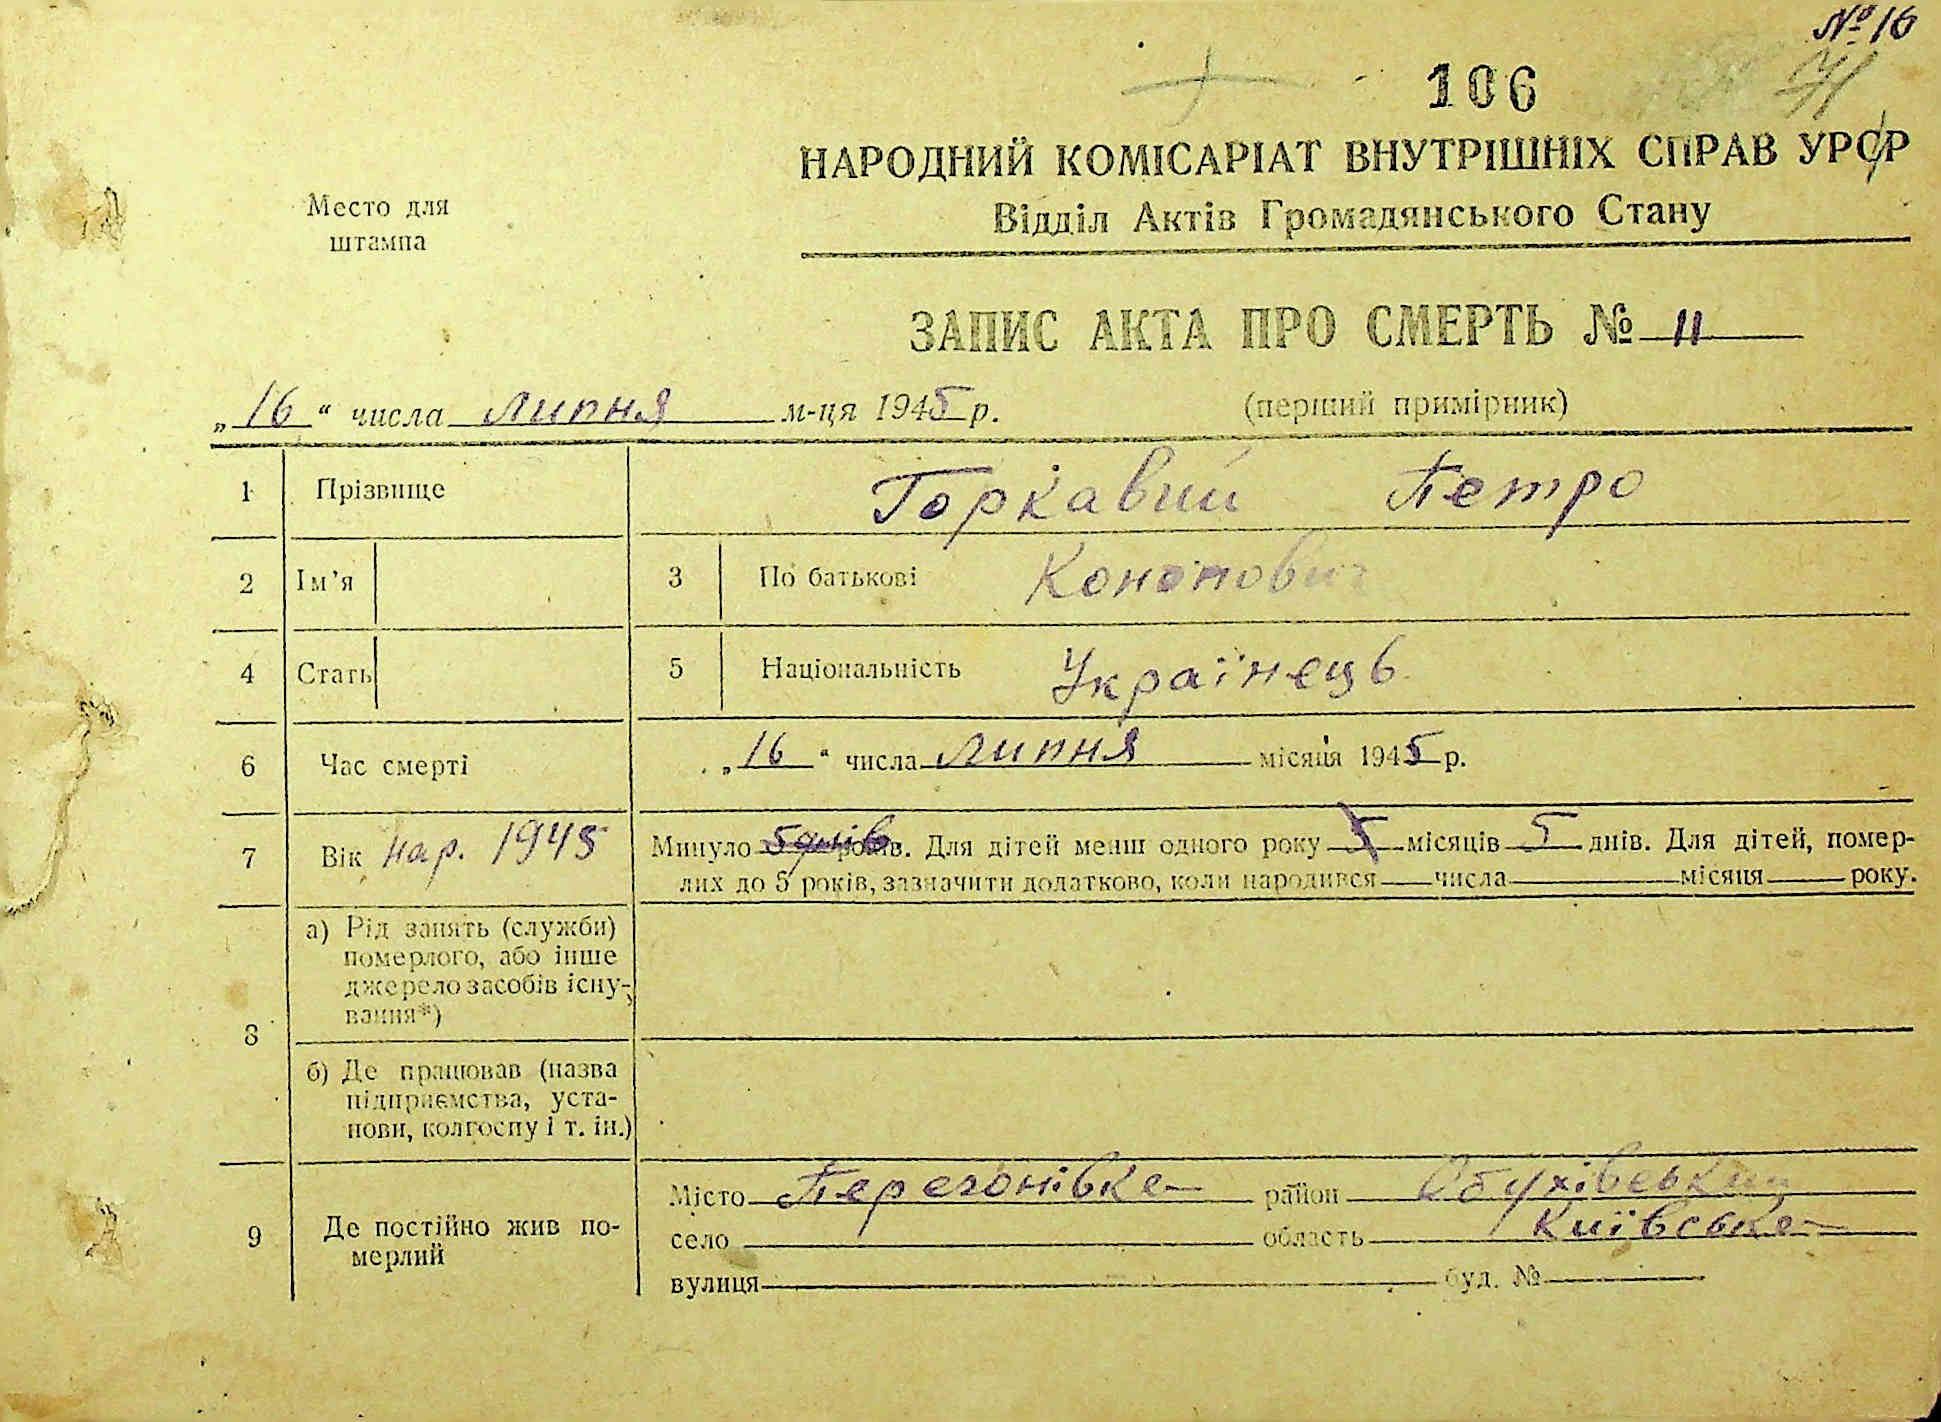 № 16
106
НАРОДНИЙ КОМІСАРІАТ ВНУТРІШНІХ СПРАВ УРСР
Відділ Актів Громадянського Стану
Место для
штампа
ЗАПИС АКТА ПРО СМЕРТЬ № 11
„16“ числа липня м-ця 1945 р.
(перший примірник)
1 Прізвище Горкавий Петро
2 Ім’я 3 По батькові Конопович
4 Стать 5 Національність Українець
6 Час смерті „16“ числа липня місяця 1945 р.
7 Вік нар. 1945 Минуло 5 днів років. Для дітей менш одного року 5 місяців 5 днів. Для дітей, помер-
лих до 5 років, зазначити додатково, коли народився числа місяця року.
8 а) Рід занять (служби)
померлого, або інше
джерело засобів існу-
вання*)
б) Де працював (назва
підприємства, уста-
нови, колгоспу і т. ін.)
9 Де постійно жив по-
мерлий
Місто Перегонівке район Обухівський
село область Київське
вулиця буд. №